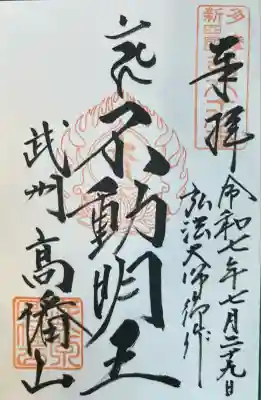 奉拝
令和七年七月二十九日
弘法大師御作
花不動明王
武州
高幡山